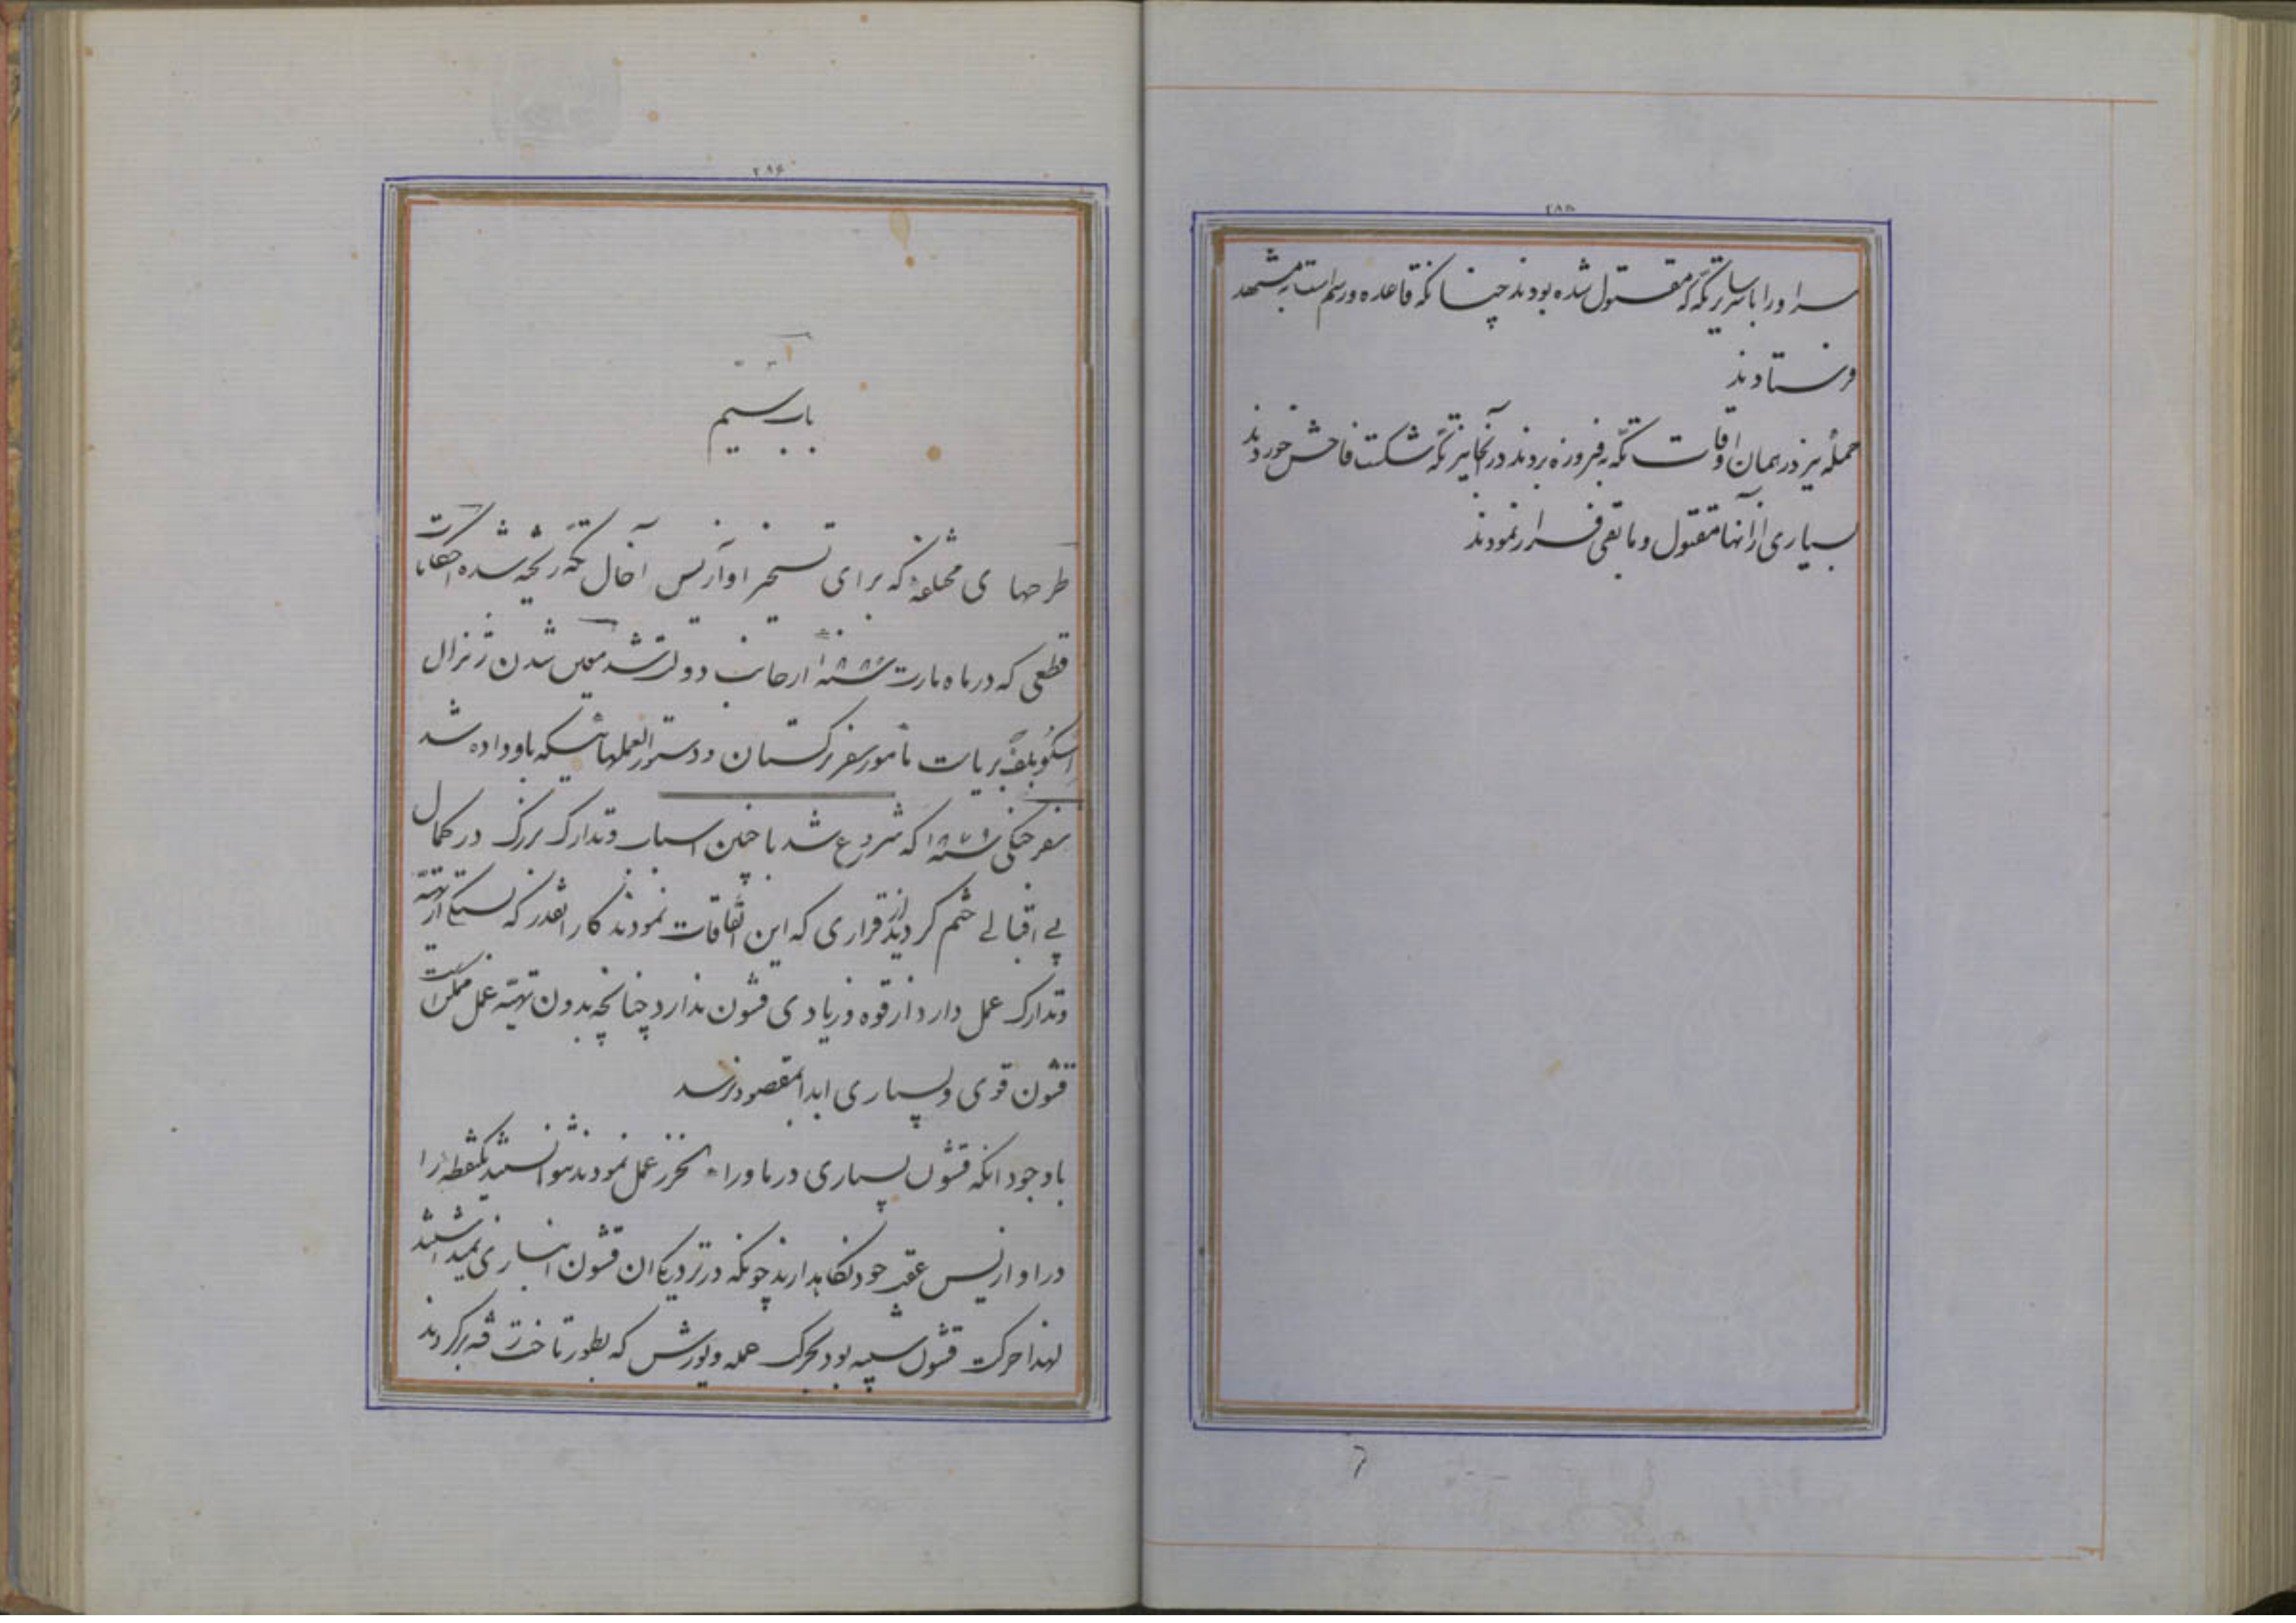 سر او را با سایر تکه که مقتول شده بودند چنانکه قاعده و رسم است به مشهد
فرستادند
حملهٔ نیز در همان اوقات تکه به فیروزه بردند در آنجا نیز تکه شکست فاحش خوردند
بسیاری از آنها مقتول و مابقی فرار نمودند
باب بیستم
طرحهای مختلفه که برای تسخیر اوآزیس آخال تکه ریخته شده
قطعی که در ماه مارت از جانب دولت شد معین شدن ژنرال
اسکوبلف بریاست مأمور سفر ترکستان و دستورالعملهائیکه باو داده شد
سفر جنگی که شروع شد با چنین اسباب و تدارک بزرگ در کمال
بی اقبالی ختم کردید از قراری که این اتفاقات نمودند کار آنقدر که بستگی از تهیّه
و تدارک عمل دارد از قوه و زیادی قشون ندارد چنانچه بدون تهیّه عمل ممکن است
قشون قوی و بسیاری ابدا بمقصود نرسد
با وجود آنکه قشون بسیاری در ماوراء خزر عمل نمودند نتوانستند یکنقطه را
در اوازیس عقب خود نگاهدارند چونکه در نزدیکی آن قشون انباری نمیداشتند
لهذا حرکت قشون شبیه بود بحرکت حمله و یورش که بطور تاخت رفته برگردند